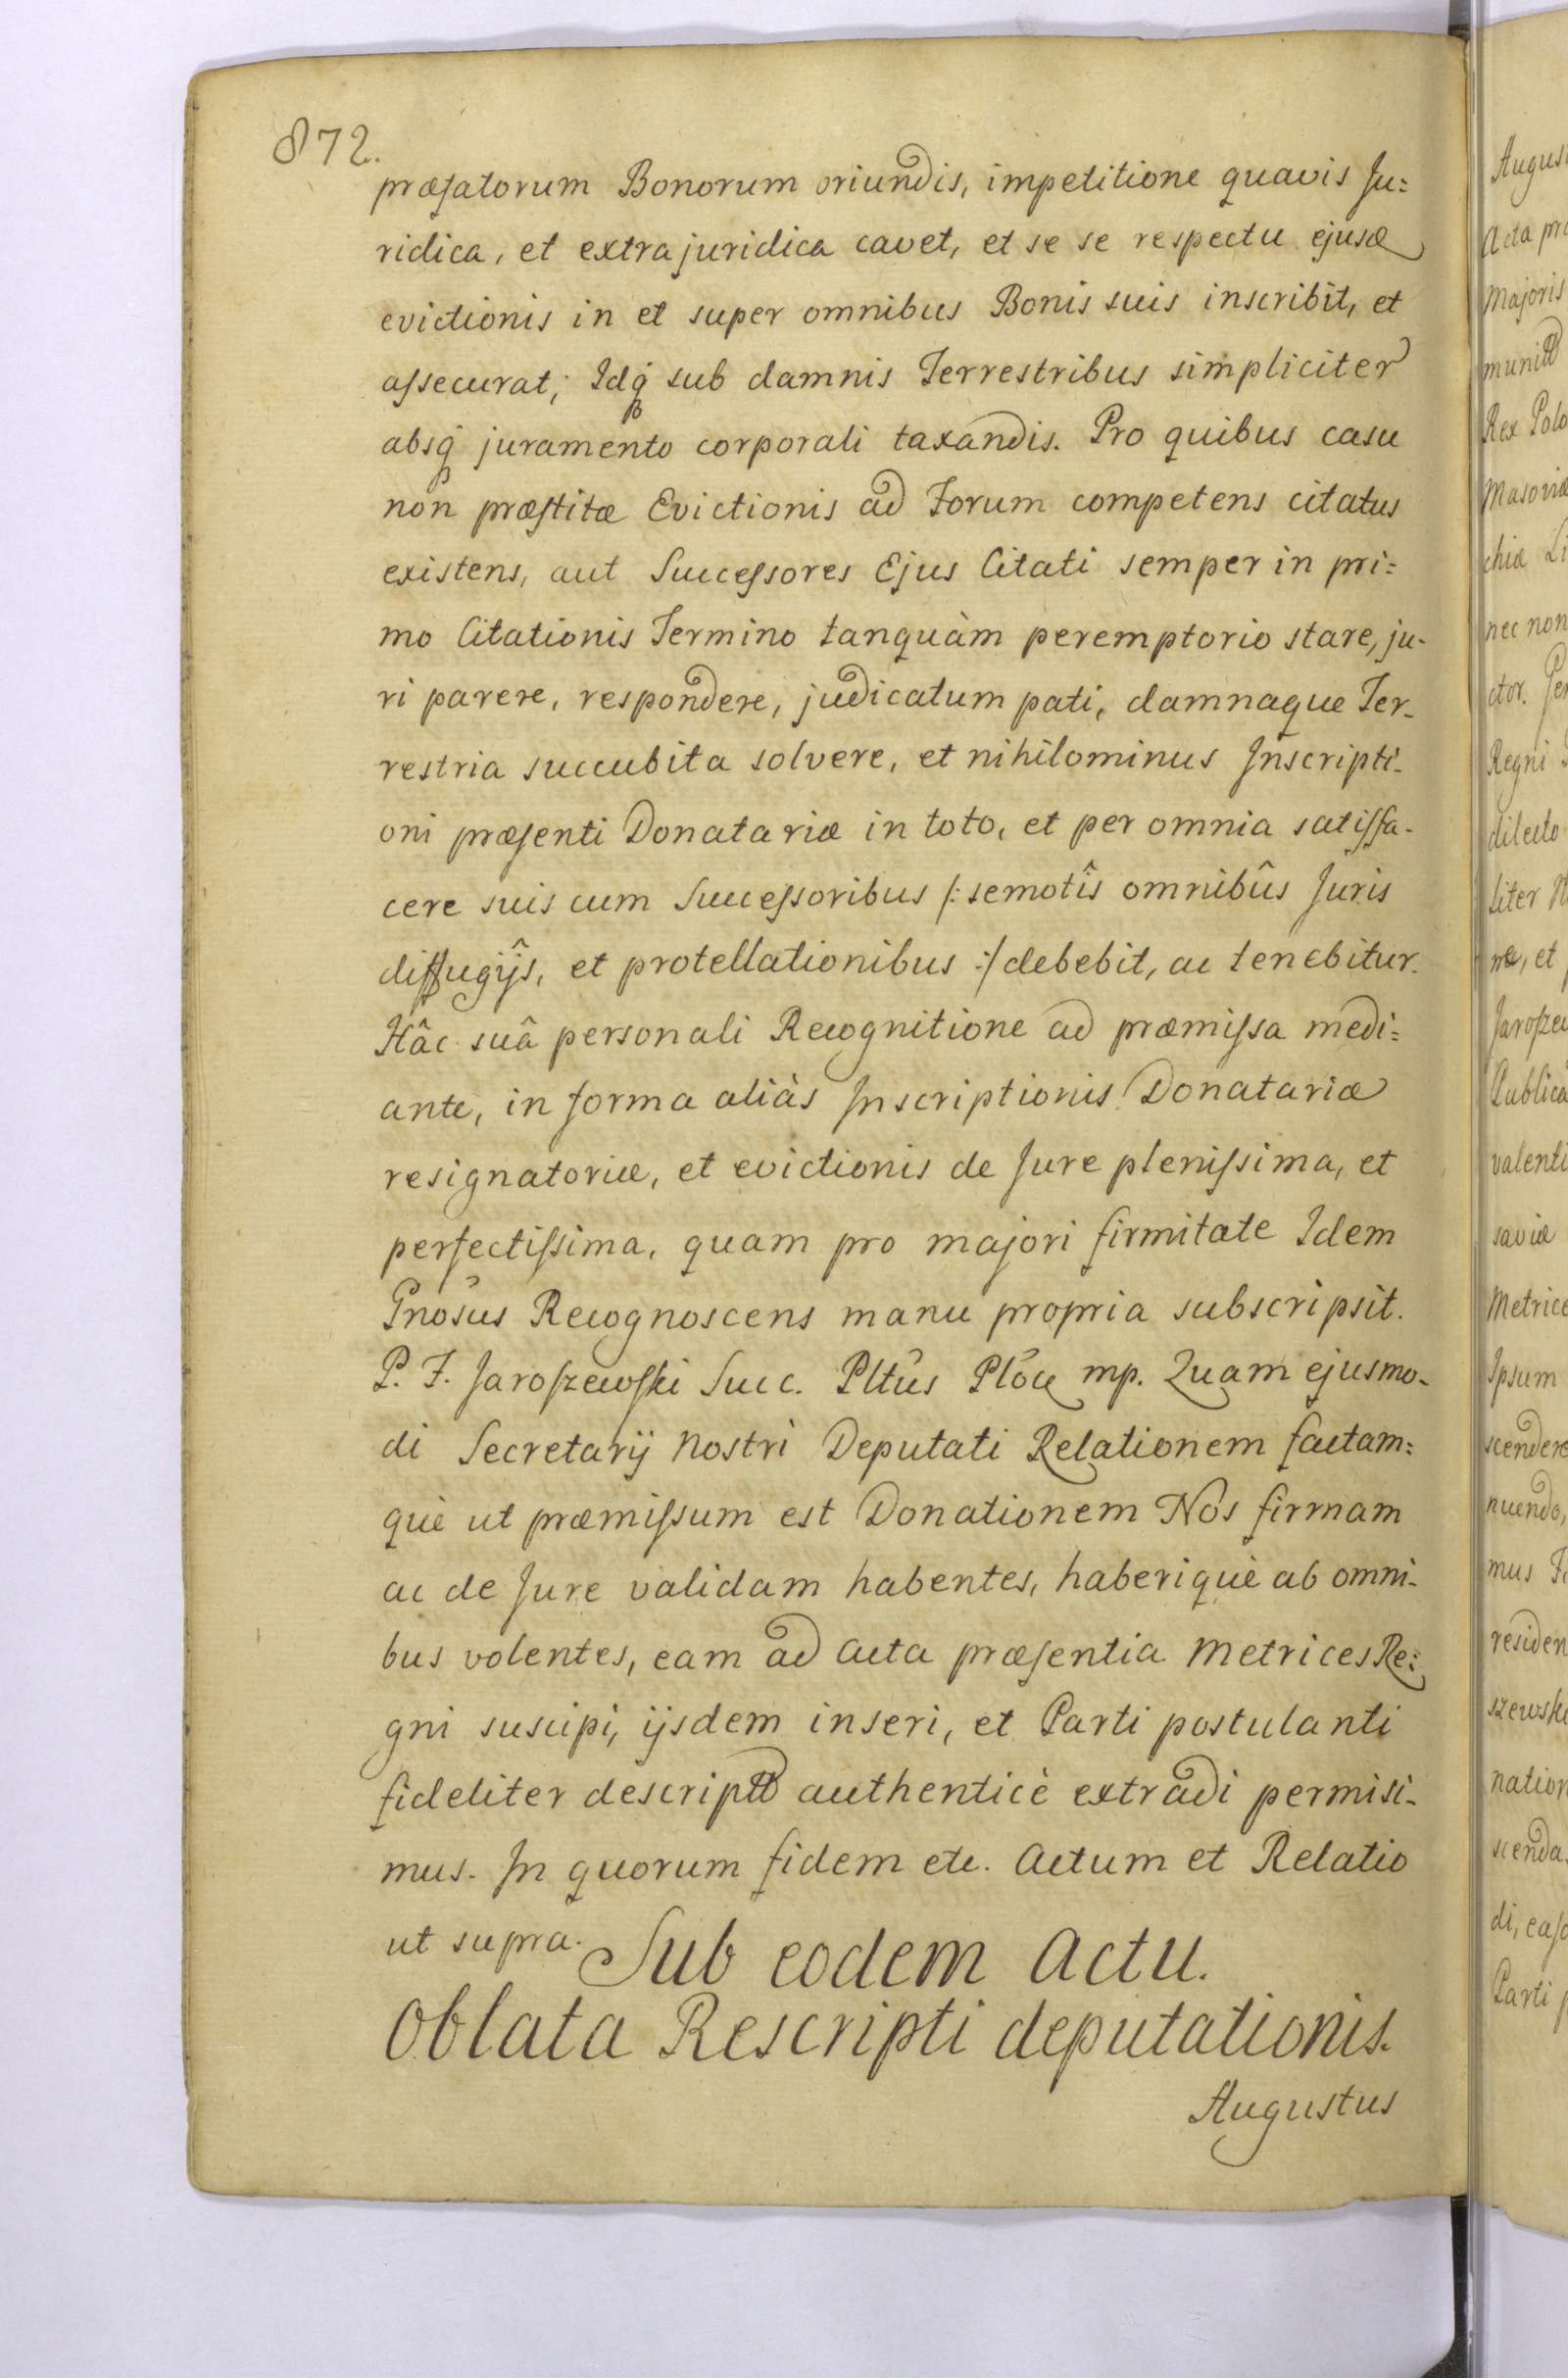 872.
præfatorum Bonorum oriundis, impetitione quavis Ju=
ridica, et extrajuridica cavet, et se se respectu ejusd
evictionis in et super omnibus Bonis suis inscribit, et
assecurat; Idq́ sub damnis Terrestribus simpliciter
absq́ juramento corporali taxandis. Pro quibus casu
non præstitæ Evictionis ad Forum competens citatus
existens, aut Successores Ejus Citati semper in pri=
mo Citationis Termino tanquàm peremptorio stare, ju-
ri parere, respondere, judicatum pati, damnaque Ter-
restria succubita solvere, et nihilominus Inscripti-
oni præsenti Donatariæ in toto, et per omnia satisfa-
cere suis cum Successoribus /: semotîs omnibûs Juris
diffugijs, et protellationibus :/ debebit, ac tenebitur.
Hâc suâ personali Recognitione ad præmissa medi=
ante, in forma aliàs Inscriptionis Donatariæ
resignatoriæ, et evictionis de Jure plenissima, et
perfectissima, quam pro majori firmitate Idem
Gnosus Recognoscens manu propria subscripsit.
P. F. Jaroszewski Succ. Pltus Ploce mp. Quam ejusmo-
di Secretarij Nostri Deputati Relationem factam=
què ut præmissum est Donationem Nos firmam
ac de Jure validam habentes, haberiquè ab omni-
bus volentes, eam ad Acta præsentia Metrices Re=
gni suscipi, ijsdem inseri, et Parti postulanti
fideliter descriptd authenticè extradi permisi-
mus. In quorum fidem etc. Actum et Relatio
ut supra. Sub eodem Actu.
Oblata Rescripti deputationis.
Augustus
Acta pro
Majoris
Rex Polo
Masoviæ
chiæ Li
nec non
ctor.
Regni
dilecto
liter
, et
Jaroszew
Publica
valenti
saviæ
Metrice
Ipsum
scendere
nuendo,
mus
residen
szewski
nation
scenda
di, 
Parti